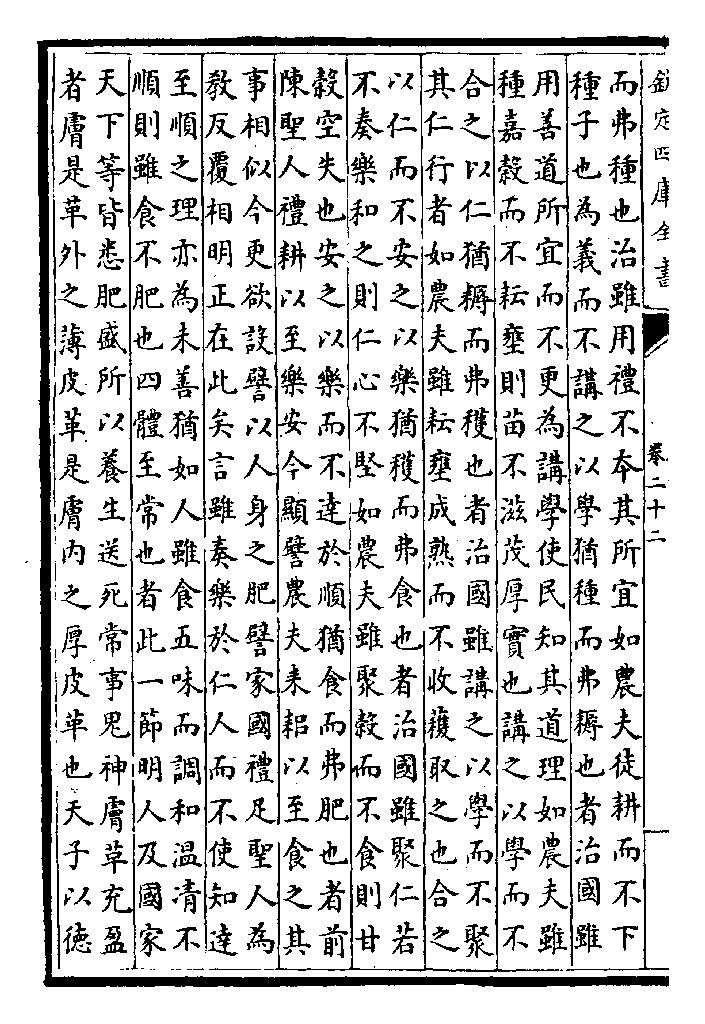 欽定四庫全書
卷二十二
而弗種也治雖用禮不本其所宜如農夫徒耕而不下
種子也為義而不講之以學猶種而弗耨也者治國雖
用善道所宜而不更為講學使民知其道理如農夫雖
種嘉穀而不耘壅則苗不滋茂厚實也講之以學而不
合之以仁猶耨而弗穫也者治國雖講之以學而不聚
其仁行者如農夫雖耘壅成熟而不收穫取之也合之
以仁而不安之以樂猶穫而弗食也者治國雖聚仁若
不奏樂和之則仁心不堅如農夫雖聚穀而不食則甘
穀空失也安之以樂而不達於順猶食而弗肥也者前
陳聖人禮耕以至樂安今顯譬農夫耒耜以至食之其
事相似今更欲設譬以人身之肥譬家國禮足聖人為
敎反覆相明正在此矣言雖奏樂於仁人而不使知達
至順之理亦為未善猶如人雖食五味而調和温清不
順則雖食不肥也四體至常也者此一節明人及國家
天下等皆悉肥盛所以養生送死常事鬼神膚草充盈
者膚是革外之薄皮革是膚內之厚皮革也天子以德